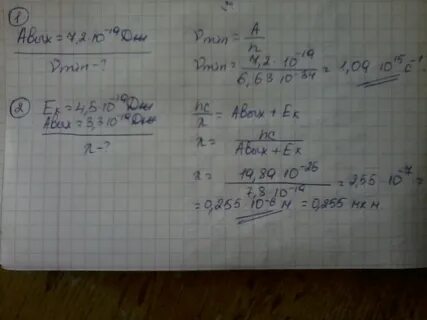 ①
Aвых = 7,2·10⁻¹⁹ Дж
νmin - ?
νmin = A/h
νmin = 7,2·10⁻¹⁹ / 6,63·10⁻³⁴ = 1,09·10¹⁵ с⁻¹
②
Eк = 4,5·10⁻¹⁹ Дж
Aвых = 3,3·10⁻¹⁹ Дж
λ - ?
hc/λ = Aвых + Eк
λ = hc / Aвых + Eк
λ = 19,89·10⁻²⁶ / 7,8·10⁻¹⁹ = 2,55·10⁻⁷ =
= 0,255·10⁻⁶ м = 0,255 мкм